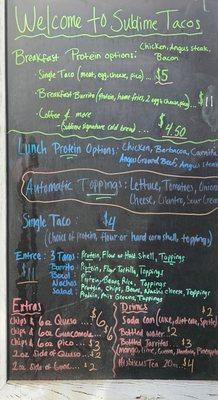 Welcome to Sublime Tacos
Breakfast Protein options: Chicken, Angus steak,
Bacon
· Single Taco (meat, egg, cheese, pico) ... $5
· Breakfast Burrito (protein, home fries, 2 eggs cheese, pico) ... $11
· Coffee & more
(Sublime signature cold brew) .... $4.50
Lunch Protein Options: Chicken, Barbacoa, Carnitas
Angus Ground Beef, Angus steak
Automatic Toppings: Lettuce, Tomatoes, Onion
Cheese, Cilantro, Sour Cream
Single Taco $4
(Choice of protein, flour or hard corn shell, toppings)
Entree: 3 Tacos: Protein, Flour or Hard Shell, Toppings
$11 Burrito Protein, Flour Tortilla, Toppings
Bowl Protein, Beans, Rice, Toppings
Nachos Protein, Chips, Beans, Nacho cheese, Toppings
Salad Protein, Mix Greens, Toppings
Extras
Chips & 6oz Queso .... $6
Chips & 6oz Guacamole ... $6
Chips & 6oz Pico ... $3
2oz Side of Queso ... $2
2oz Side of Guac ... $2
Drinks
Soda Can (Coke, diet coke, Sprite) $2
Bottled water .. $2
Bottled Jarritos $3
(mango, lime, Guava, Mandarin, Pineapple)
Hibiscus Tea 20oz $4